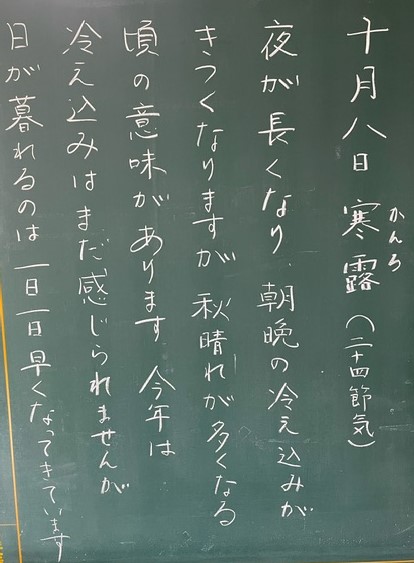 十月八日 寒露(二十四節気)
かんろ
夜が長くなり 朝晩の冷え込みが
きつくなりますが 秋晴れが多くなる
頃の意味があります 今年は
冷え込みはまだ感じられませんが
日が暮れるのは 一日一日早くなってきています